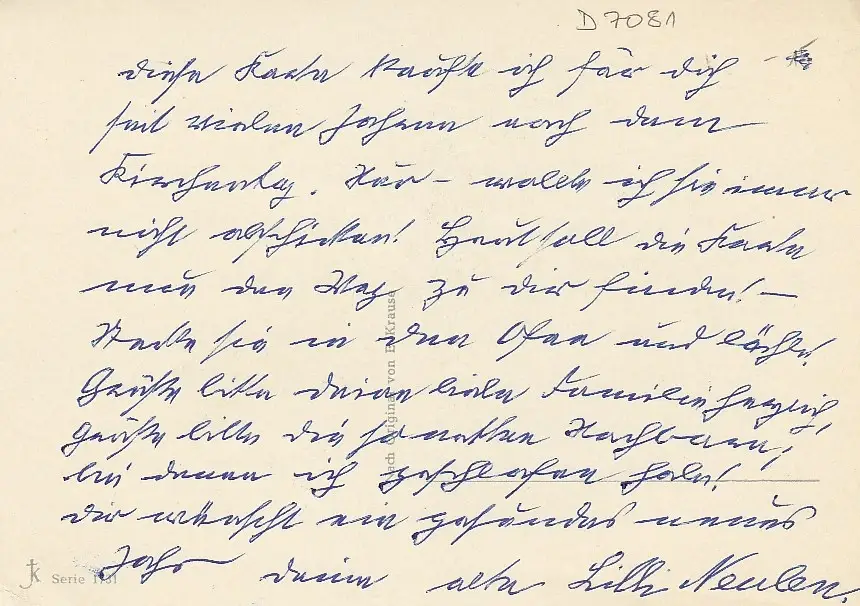 D 7081
diese Karte kaufte ich für dich
seit vielen Jahren nach dem
Kirchentag. Nur – wollte ich sie immer
nicht abschicken! Heut soll die Karte
nun den Weg zu dir finden! –
Stecke sie in den Ofen und lächle!
Grüße bitte deine liebe Familie herzlich,
grüße bitte die so netten Nachbarn,
bei denen ich geschlafen habe!
Dir wünscht ein gesundes neues
Jahr deine alte Lilli
nach Original von E. Krause
Serie 1731